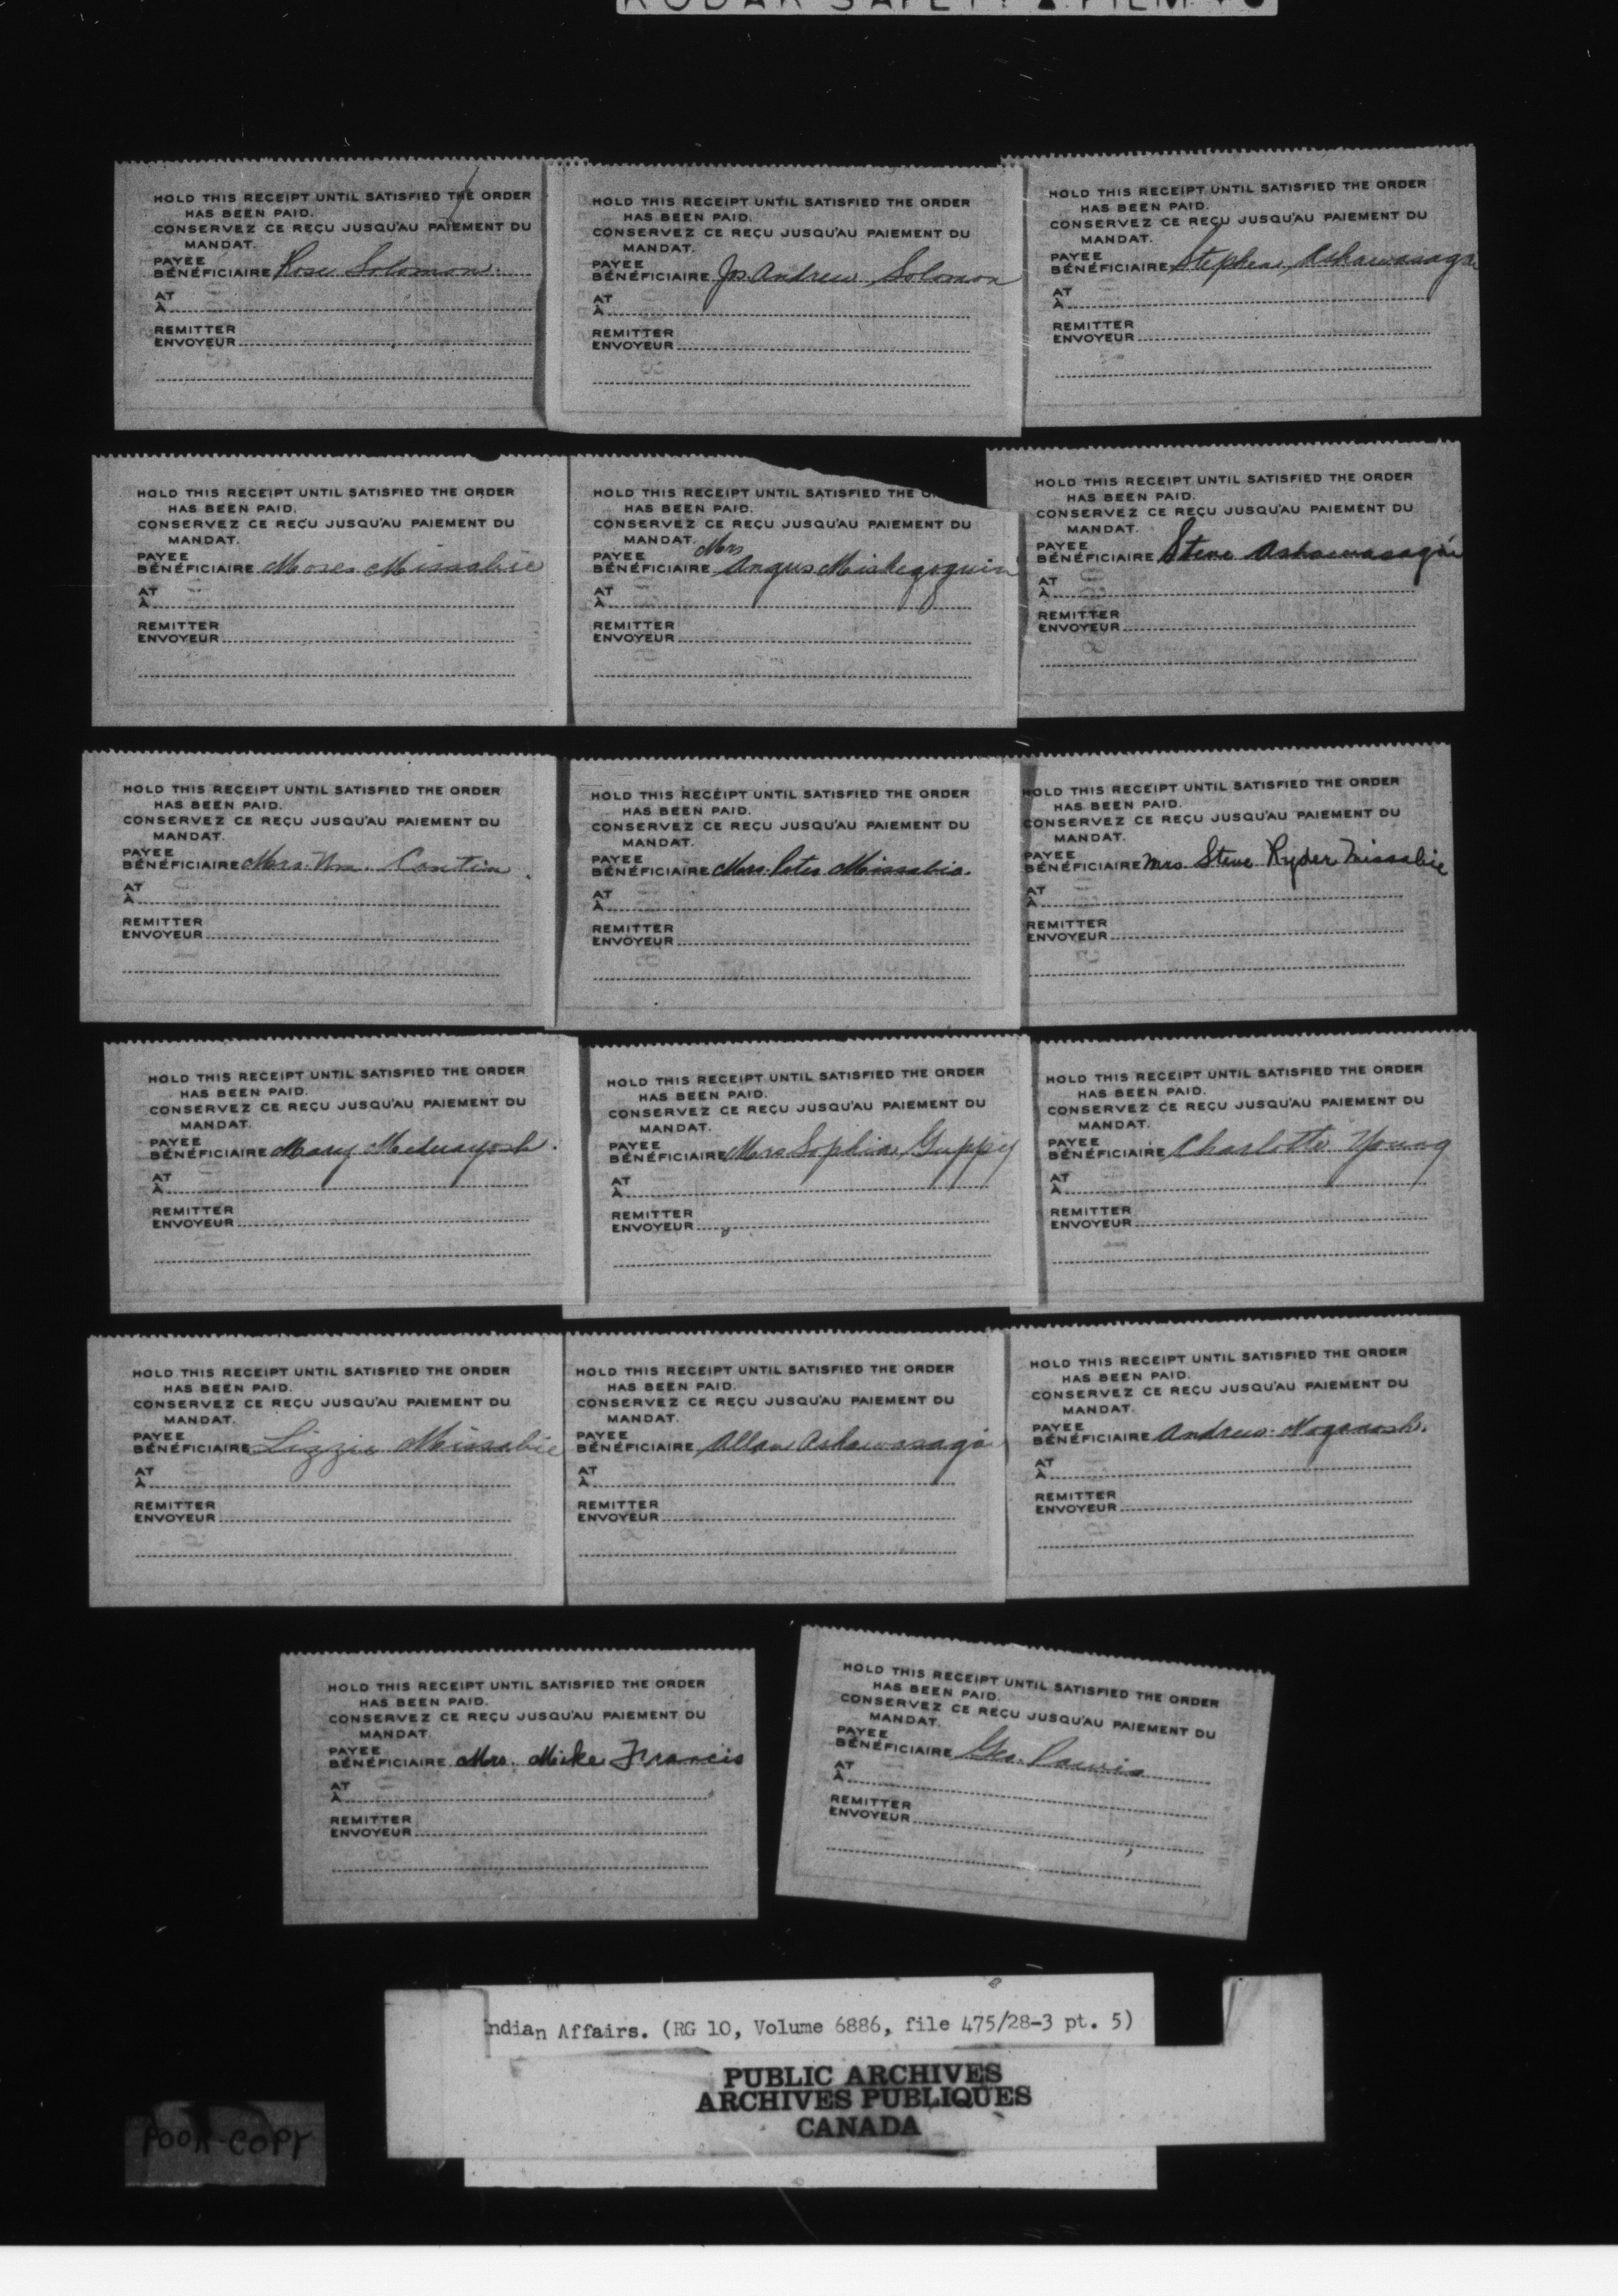 KODAK SAFETY FILM
HOLD THIS RECEIPT UNTIL SATISFIED THE ORDER
HAS BEEN PAID.
CONSERVEZ CE REÇU JUSQU'AU PAIEMENT DU
MANDAT.
PAYEE
BÉNÉFICIAIRE Rose Solomon
AT
À
REMITTER
ENVOYEUR
HOLD THIS RECEIPT UNTIL SATISFIED THE ORDER
HAS BEEN PAID.
CONSERVEZ CE REÇU JUSQU'AU PAIEMENT DU
MANDAT.
PAYEE
BÉNÉFICIAIRE Jos Andrew Solomon
AT
À
REMITTER
ENVOYEUR
HOLD THIS RECEIPT UNTIL SATISFIED THE ORDER
HAS BEEN PAID.
CONSERVEZ CE REÇU JUSQU'AU PAIEMENT DU
MANDAT.
PAYEE
BÉNÉFICIAIRE Stephen
AT
À
REMITTER
ENVOYEUR
HOLD THIS RECEIPT UNTIL SATISFIED THE ORDER
HAS BEEN PAID.
CONSERVEZ CE REÇU JUSQU'AU PAIEMENT DU
MANDAT.
PAYEE
BÉNÉFICIAIRE Moses Missabie
AT
À
REMITTER
ENVOYEUR
HOLD THIS RECEIPT UNTIL SATISFIED THE
HAS BEEN PAID.
CONSERVEZ CE REÇU JUSQU'AU PAIEMENT DU
MANDAT.
Mrs
PAYEE
BÉNÉFICIAIRE Angus
AT
À
REMITTER
ENVOYEUR
HOLD THIS RECEIPT UNTIL SATISFIED THE ORDER
HAS BEEN PAID.
CONSERVEZ CE REÇU JUSQU'AU PAIEMENT DU
MANDAT.
PAYEE
BÉNÉFICIAIRE Steve
AT
À
REMITTER
ENVOYEUR
HOLD THIS RECEIPT UNTIL SATISFIED THE ORDER
HAS BEEN PAID.
CONSERVEZ CE REÇU JUSQU'AU PAIEMENT DU
MANDAT.
PAYEE
BÉNÉFICIAIRE Mrs. Wm. Contin
AT
À
REMITTER
ENVOYEUR
HOLD THIS RECEIPT UNTIL SATISFIED THE ORDER
HAS BEEN PAID.
CONSERVEZ CE REÇU JUSQU'AU PAIEMENT DU
MANDAT.
PAYEE
BÉNÉFICIAIRE Mrs. Peter Missabie.
AT
À
REMITTER
ENVOYEUR
HOLD THIS RECEIPT UNTIL SATISFIED THE ORDER
HAS BEEN PAID.
CONSERVEZ CE REÇU JUSQU'AU PAIEMENT DU
MANDAT.
PAYEE
BÉNÉFICIAIRE Mrs Steve Ryder Missabie
AT
À
REMITTER
ENVOYEUR
HOLD THIS RECEIPT UNTIL SATISFIED THE ORDER
HAS BEEN PAID.
CONSERVEZ CE REÇU JUSQU'AU PAIEMENT DU
MANDAT.
PAYEE
BÉNÉFICIAIRE Mary
AT
À
REMITTER
ENVOYEUR
HOLD THIS RECEIPT UNTIL SATISFIED THE ORDER
HAS BEEN PAID.
CONSERVEZ CE REÇU JUSQU'AU PAIEMENT DU
MANDAT.
PAYEE
BÉNÉFICIAIRE Mrs Sophia Guppy
AT
À
REMITTER
ENVOYEUR
HOLD THIS RECEIPT UNTIL SATISFIED THE ORDER
HAS BEEN PAID.
CONSERVEZ CE REÇU JUSQU'AU PAIEMENT DU
MANDAT.
PAYEE
BÉNÉFICIAIRE Charlotte Young
AT
À
REMITTER
ENVOYEUR
HOLD THIS RECEIPT UNTIL SATISFIED THE ORDER
HAS BEEN PAID.
CONSERVEZ CE REÇU JUSQU'AU PAIEMENT DU
MANDAT.
PAYEE
BÉNÉFICIAIRE Lizzie Missabie
AT
À
REMITTER
ENVOYEUR
HOLD THIS RECEIPT UNTIL SATISFIED THE ORDER
HAS BEEN PAID.
CONSERVEZ CE REÇU JUSQU'AU PAIEMENT DU
MANDAT.
PAYEE
BÉNÉFICIAIRE Allan
AT
À
REMITTER
ENVOYEUR
HOLD THIS RECEIPT UNTIL SATISFIED THE ORDER
HAS BEEN PAID.
CONSERVEZ CE REÇU JUSQU'AU PAIEMENT DU
MANDAT.
PAYEE
BÉNÉFICIAIRE Andrew Noganosh.
AT
À
REMITTER
ENVOYEUR
HOLD THIS RECEIPT UNTIL SATISFIED THE ORDER
HAS BEEN PAID.
CONSERVEZ CE REÇU JUSQU'AU PAIEMENT DU
MANDAT.
PAYEE
BÉNÉFICIAIRE Mrs. Mike Francis
AT
À
REMITTER
ENVOYEUR
HOLD THIS RECEIPT UNTIL SATISFIED THE ORDER
HAS BEEN PAID.
CONSERVEZ CE REÇU JUSQU'AU PAIEMENT DU
MANDAT.
PAYEE
BÉNÉFICIAIRE Geo.
AT
À
REMITTER
ENVOYEUR
Indian Affairs. (RG 10, Volume 6886, file 475/28-3 pt. 5)
PUBLIC ARCHIVES
ARCHIVES PUBLIQUES
CANADA
POOR COPY